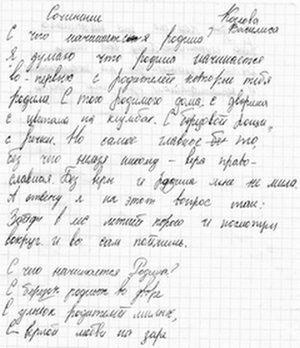 Сочинение Козлова Василиса
С чего начинается родина?
Я думаю что родина начинается
во-первых с родителей которые тебя
родили. С того родимого дома, с дворика
с цветами на клумбах. С берёзовой рощи,
с речки. Но самое главное то,
без чего нельзя никому - вера право-
славная. Без веры и родина мне не мила.
А отвечу я на этот вопрос так:
Зайди в лес летней порою и посмотри
вокруг и всё сам поймёшь.
С чего начинается Родина?
С берёзок родных во дворе
С улыбок родителей милых,
С верной любви на заре